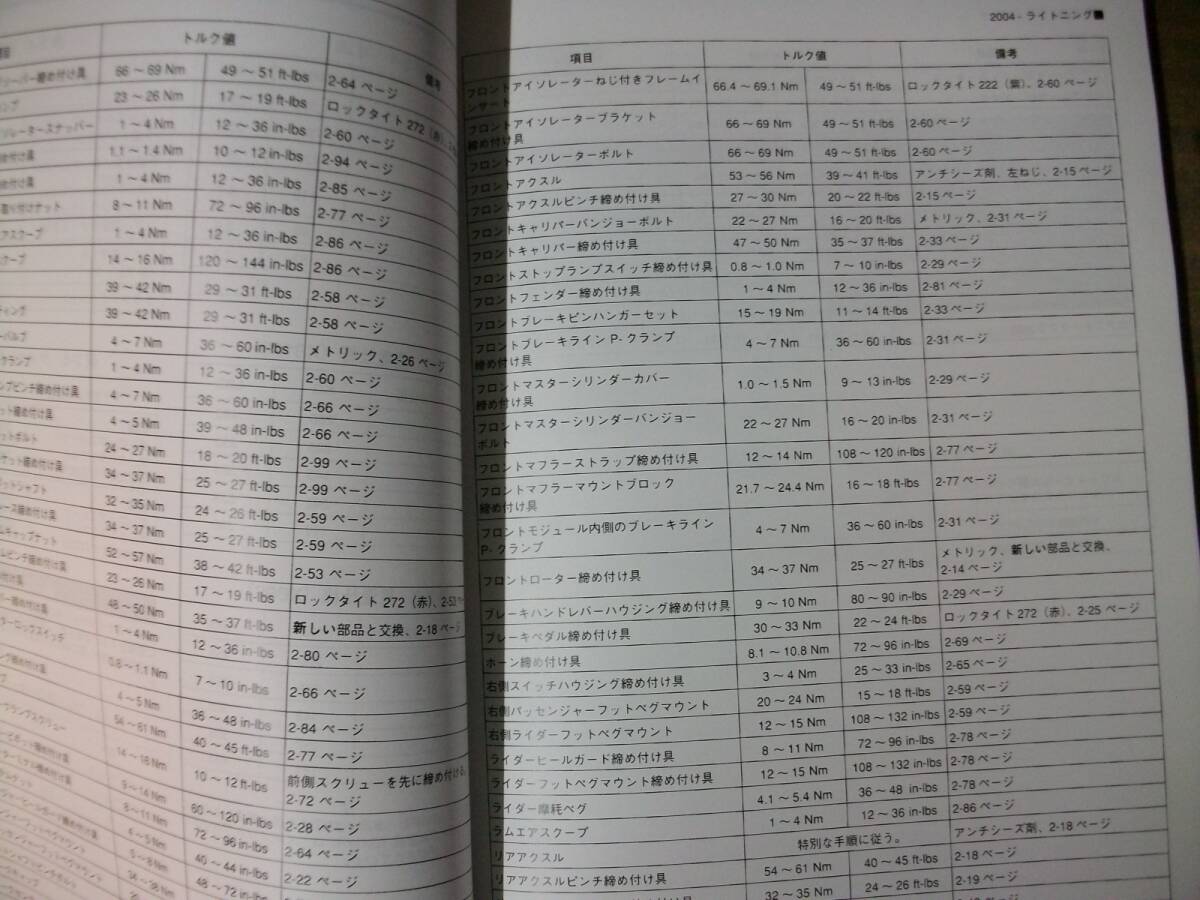 項目 トルク値 備考
ーパー締め付け具 66～69 Nm 49～51 ft-lbs 2-64 ページ
23～26 Nm 17～19 ft-lbs ロックタイト272（赤）、
ソレータースナッパー 1～4 Nm 12～36 in-lbs 2-60 ページ
付け具 1.1～1.4 Nm 10～12 in-lbs 2-94 ページ
付け具 1～4 Nm 12～36 in-lbs 2-85 ページ
取り付けナット 8～11 Nm 72～96 in-lbs 2-77 ページ
アスクープ 1～4 Nm 12～36 in-lbs 2-86 ページ
クープ 14～16 Nm 120～144 in-lbs 2-86 ページ
39～42 Nm 29～31 ft-lbs 2-58 ページ
ティング 39～42 Nm 29～31 ft-lbs 2-58 ページ
ーバルブ 4～7 Nm 36～60 in-lbs メトリック、2-26 ページ
クランプ 1～4 Nm 12～36 in-lbs 2-60 ページ
ンプピンチ締め付け具 4～7 Nm 36～60 in-lbs 2-66 ページ
ット締め付け具 4～5 Nm 39～48 in-lbs 2-66 ページ
ットボルト 24～27 Nm 18～20 ft-lbs 2-99 ページ
ケット締め付け具 34～37 Nm 25～27 ft-lbs 2-99 ページ
ットシャフト 32～35 Nm 24～26 ft-lbs 2-59 ページ
ース締め付け具 34～37 Nm 25～27 ft-lbs 2-59 ページ
ムキャップナット 52～57 Nm 38～42 ft-lbs 2-53 ページ
ムピンチ締め付け具 23～26 Nm 17～19 ft-lbs ロックタイト272（赤）、2-53
付け具 48～50 Nm 35～37 ft-lbs 新しい部品と交換、2-18 ページ
バー締め付け具 1～4 Nm 12～36 in-lbs 2-80 ページ
ターロックスイッチ 0.8～1.1 Nm 7～10 in-lbs 2-66 ページ
4～5 Nm 36～48 in-lbs 2-84 ページ
54～61 Nm 40～45 ft-lbs 2-77 ページ
クランプスクリュー 14～16 Nm 10～12 ft-lbs 前側スクリューを先に締め付ける。
2-72 ページ
9～14 Nm 80～120 in-lbs 2-28 ページ
8～11 Nm 72～96 in-lbs 2-64 ページ
4～5 Nm 40～44 in-lbs 2-22 ページ
5～8 Nm 48～72 in-lbs
2004 - ライトニング■
項目 トルク値 備考
フロントアイソレーターねじ付きフレームイ
ンサート 66.4～69.1 Nm 49～51 ft-lbs ロックタイト 222（紫）、2-60 ページ
フロントアイソレーターブラケット
締め付け具 66～69 Nm 49～51 ft-lbs 2-60 ページ
フロントアイソレーターボルト 66～69 Nm 49～51 ft-lbs 2-60 ページ
フロントアクスル 53～56 Nm 39～41 ft-lbs アンチシーズ剤、左ねじ、2-15 ページ
フロントアクスルピンチ締め付け具 27～30 Nm 20～22 ft-lbs 2-15 ページ
フロントキャリパーバンジョーボルト 22～27 Nm 16～20 ft-lbs メトリック、2-31 ページ
フロントキャリパー締め付け具 47～50 Nm 35～37 ft-lbs 2-33 ページ
フロントストップランプスイッチ締め付け具 0.8～1.0 Nm 7～10 in-lbs 2-29 ページ
フロントフェンダー締め付け具 1～4 Nm 12～36 in-lbs 2-81 ページ
フロントブレーキピンハンガーセット 15～19 Nm 11～14 ft-lbs 2-33 ページ
フロントブレーキライン P- クランプ
締め付け具 4～7 Nm 36～60 in-lbs 2-31 ページ
フロントマスターシリンダーカバー
締め付け具 1.0～1.5 Nm 9～13 in-lbs 2-29 ページ
フロントマスターシリンダーバンジョー
ボルト 22～27 Nm 16～20 in-lbs 2-31 ページ
フロントマフラーストラップ締め付け具 12～14 Nm 108～120 in-lbs 2-77 ページ
フロントマフラーマウントブロック
締め付け具 21.7～24.4 Nm 16～18 ft-lbs 2-77 ページ
フロントモジュール内側のブレーキライン
P- クランプ 4～7 Nm 36～60 in-lbs 2-31 ページ
フロントローター締め付け具 34～37 Nm 25～27 ft-lbs メトリック、新しい部品と交換、
2-14 ページ
ブレーキハンドレバーハウジング締め付け具 9～10 Nm 80～90 in-lbs 2-29 ページ
ブレーキペダル締め付け具 30～33 Nm 22～24 ft-lbs ロックタイト272（赤）、2-25 ページ
ホーン締め付け具 8.1～10.8 Nm 72～96 in-lbs 2-69 ページ
右側スイッチハウジング締め付け具 3～4 Nm 25～33 in-lbs 2-65 ページ
右側パッセンジャーフットペグマウント 20～24 Nm 15～18 ft-lbs 2-59 ページ
右側ライダーフットペグマウント 12～15 Nm 108～132 in-lbs 2-59 ページ
ライダーヒールガード締め付け具 8～11 Nm 72～96 in-lbs 2-78 ページ
ライダーフットペグマウント締め付け具 12～15 Nm 108～132 in-lbs 2-78 ページ
ライダー摩耗ペグ 4.1～5.4 Nm 36～48 in-lbs 2-78 ページ
ラムエアスクープ 1～4 Nm 12～36 in-lbs 2-86 ページ
リアアクスル 特別な手順に従う。 アンチシーズ剤、2-18 ページ
リアアクスルピンチ締め付け具 54～61 Nm 40～45 ft-lbs 2-18 ページ
32～35 Nm 24～26 ft-lbs 2-19 ページ